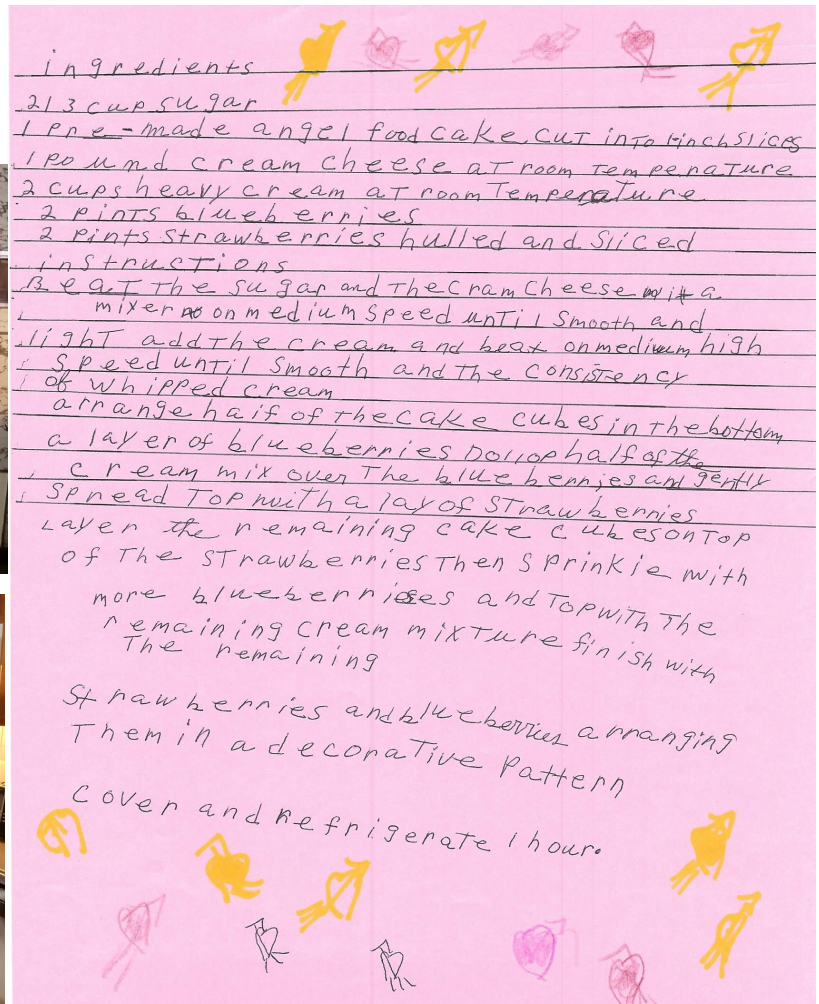 ingredients
2/3 cup sugar
1 pre-made angel food cake cut into 1-inch slices
1 pound cream cheese at room temperature
2 cups heavy cream at room temperature
2 pints blueberries
2 pints strawberries hulled and sliced
instructions
Beat the sugar and the cram cheese wit a
mixer on medium speed until smooth and
light add the cream and beat on medium high
speed until smooth and the consistency
of whipped cream
arrange half of the cake cubes in the bottom
a layer of blueberries Dollop half of the
cream mix over the blueberries and gently
spread top with a lay of strawberries
Layer the remaining cake cubes on top
of the strawberries then sprinkle with
more blueberries and top with the
remaining cream mixture finish with
The remaining
strawberries and blueberries arranging
them in a decorative pattern
cover and refrigerate 1 hour.